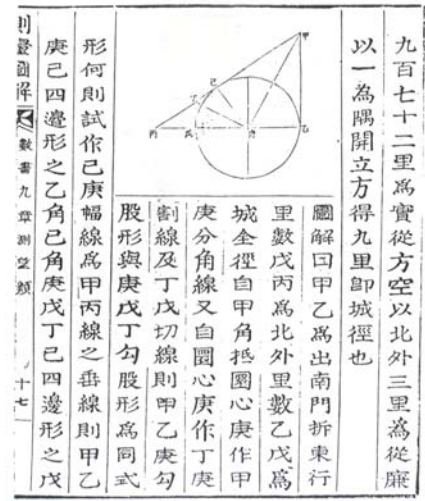 九百七十二里爲實從方空以北外三里爲從廉
以一為隅開立方得九里卽城徑也
甲
己
丁
丙
戊
庚
乙
圖解曰甲乙爲出南門折東行
里數戊丙爲北外里數乙戊爲
城全徑自甲角抵圜心庚作甲
庚分角線又自圜心庚作丁庚
割線及丁戊切線則甲乙庚勾
股形與庚戊丁勾股形爲同式
形何則試作己庚幅線爲甲丙線之垂線則甲乙
庚己四邊形之乙角己角庚戊丁己四邊形之戊
圖解
數書九章測望類
十七